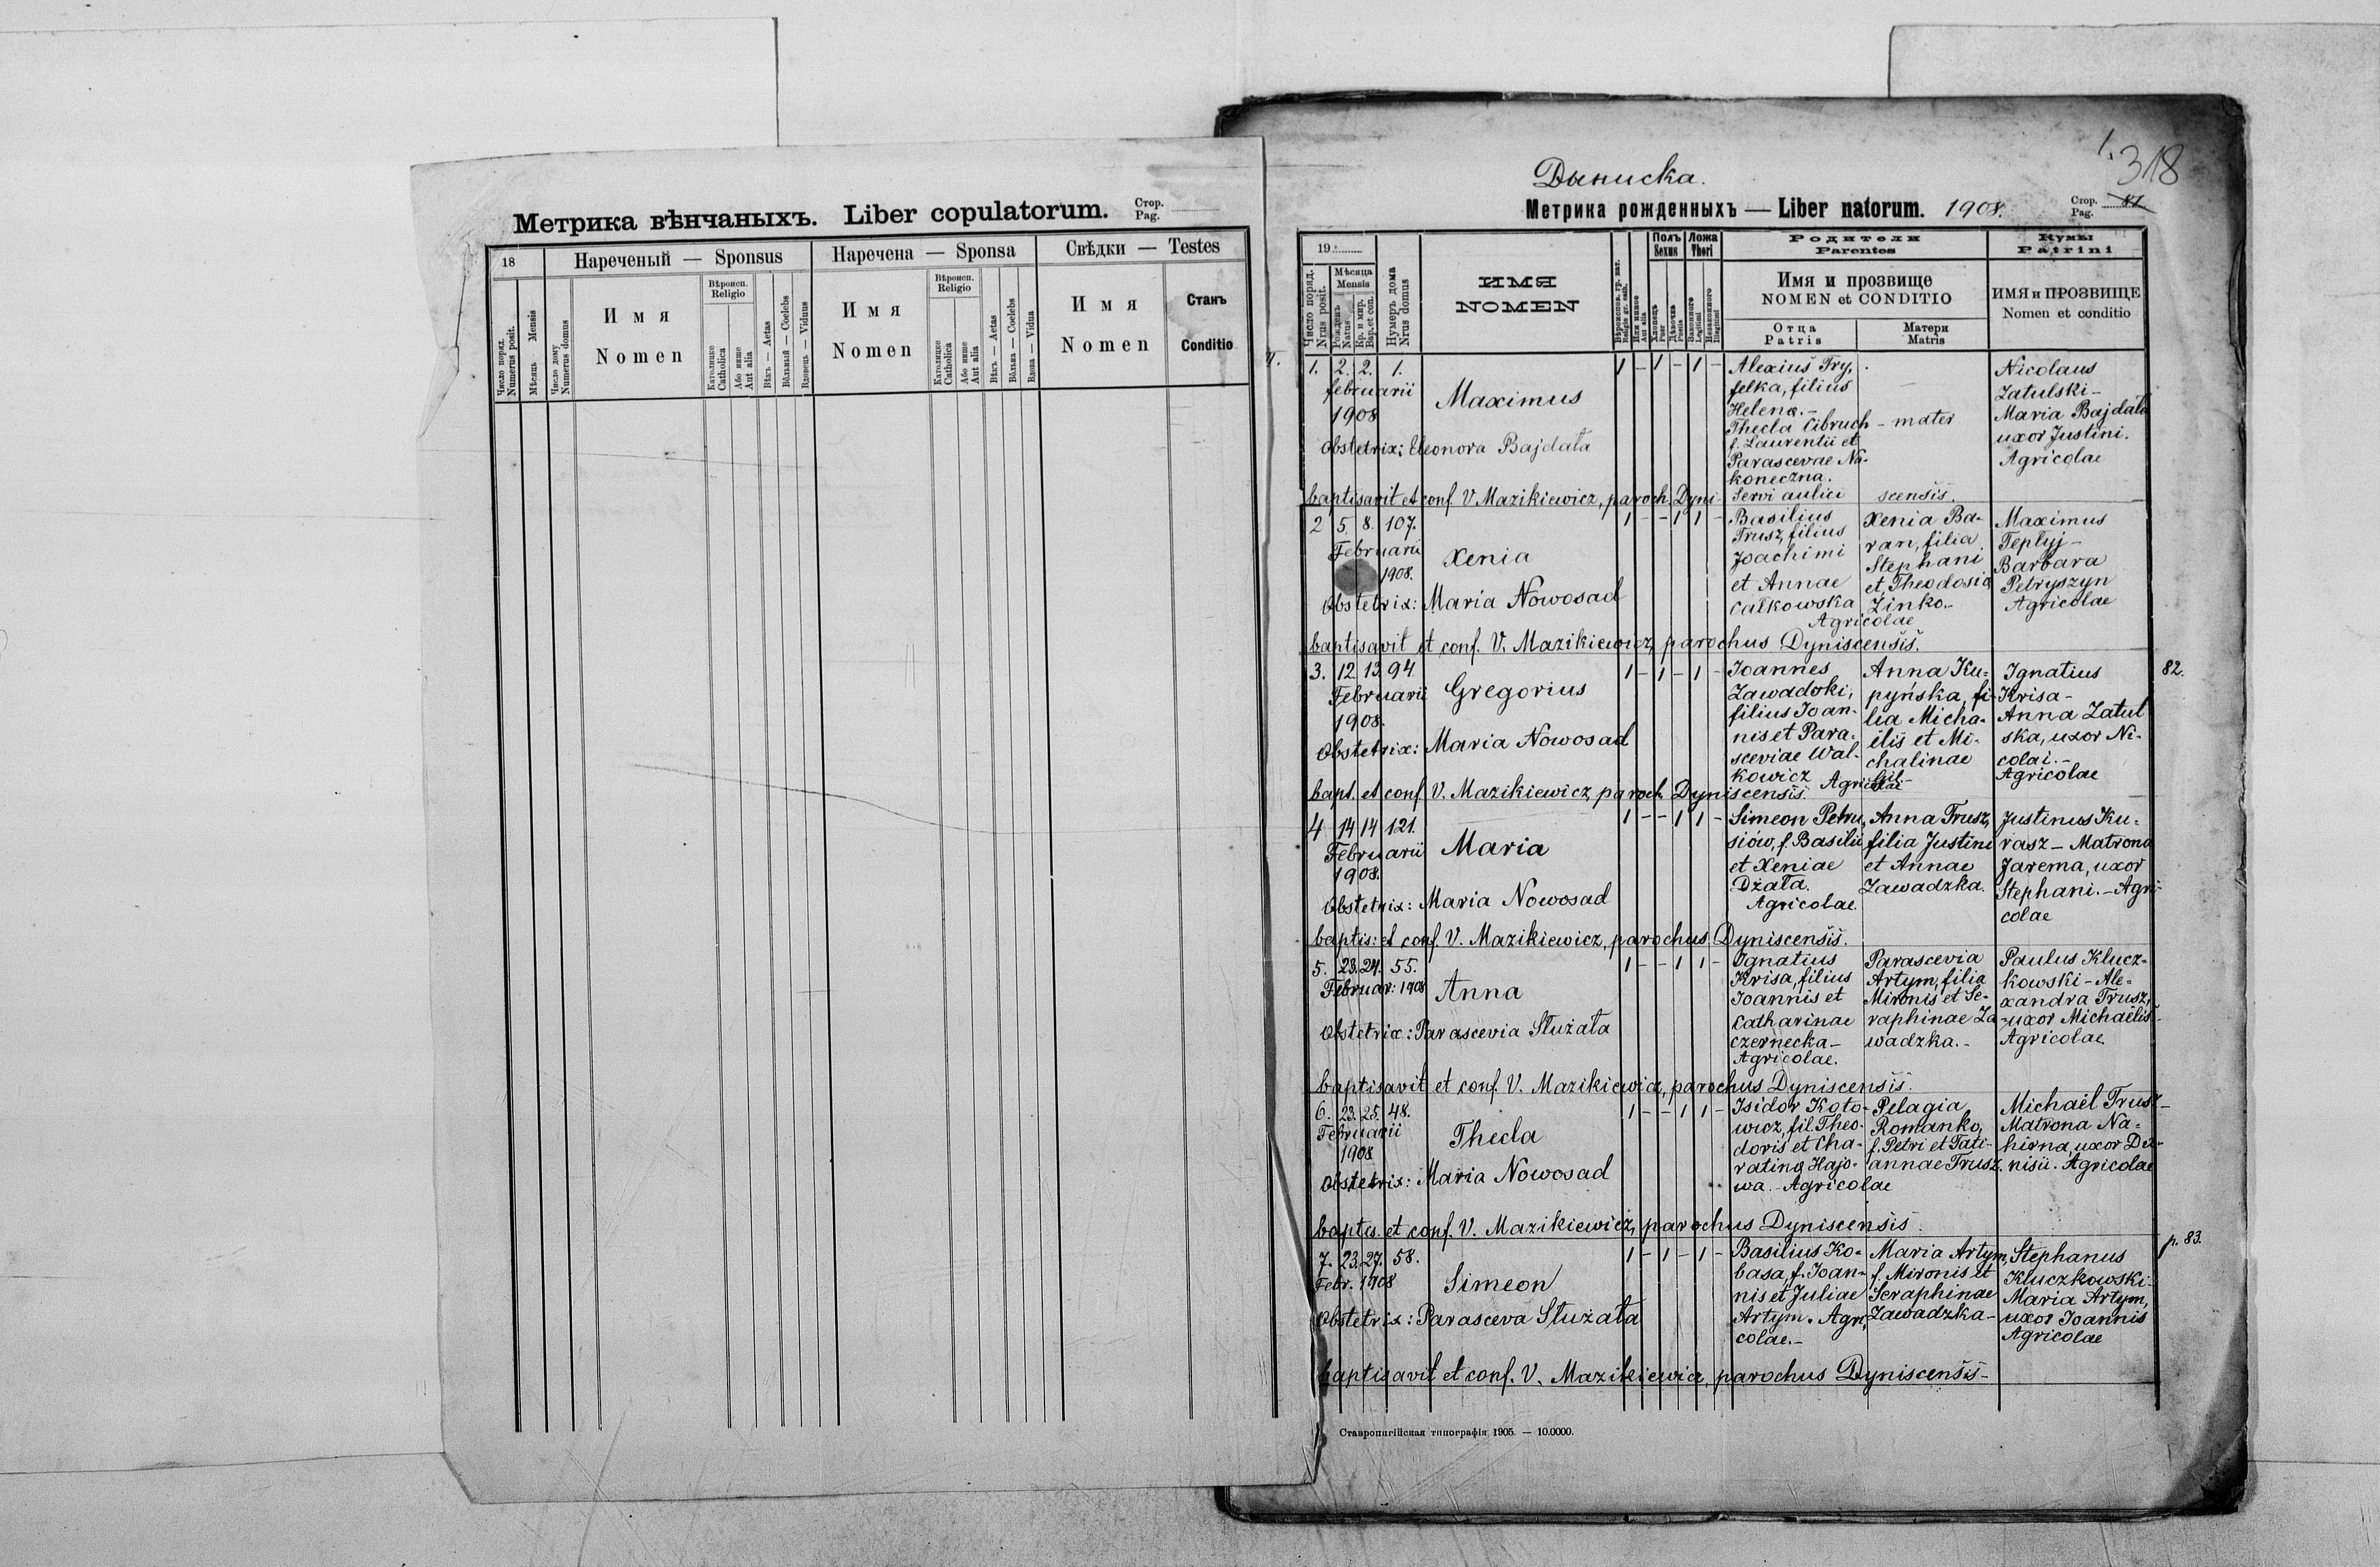 Метрика вѣнчаныхъ. Liber copulatorum. Стор. Pag.
18
Нареченый — Sponsus
Наречена — Sponsa
Свѣдки — Testes
Число поряд. Numerus posit.
Мѣсяць Mensis
Число дому Numerus domus
Имя
Nomen
Вѣроисп. Religio
Католицке Catholica
Або инше Aut alia
Вѣкъ — Aetas
Вôльный — Coelebs
Вдовець — Viduus
Имя
Nomen
Вѣроисп. Religio
Католицке Catholica
Або инше Aut alia
Вѣкъ — Aetas
Вôльна — Coelebs
Вдова — Vidua
Имя
Nomen
Станъ
Conditio
1. 318
Дыниска.
Метрика рожденныхъ — Liber natorum. 1908.
Стор. Pag. 81
19
Число поряд. Nrus posit.
Мѣсяца Mensis
Рождень Natus
Кр. и мир. Bap. et con.
Нумеръ дома Nrus domus
ИМЯ
NOMEN
Вѣроиспов. гр. кат. Religio gr. cath.
Или инное Aut alia
Полъ Sexus
Хлопець Puer
Дѣвочка Puella
Ложа Thori
Законного Legitimi
Незаконного Illegitimi
Родители
Parentes
Имя и прозвище
NOMEN et CONDITIO
Отца
Patris
Матери
Matris
Кумы
Patrini
ИМЯ и ПРОЗВИЩЕ
Nomen et conditio
1. 2. 2. 1.
februarii
1908
Maximus
1 - 1 - 1 -
Alexius Try,
felka, filius
Helenæ.-
Thecla Cibruch - mater
f. Laurentii et
Parascevae Na-
koneczna.
Servi aulici
Nicolaus
Zatulski -
Maria Bajdała
uxor Justini.
Agricolae
Obstetrix: Eleonora Bajdała
baptisavit et conf. V. Mazikiewicz, paroch. Dyni- scensis.
2 5. 8. 107.
Februarii
1908.
Xenia
1 - - 1 1 -
Basilius
Trusz, filius
Joachimi
et Annae
Całkowska
Xenia Ba-
ran, filia
Stephani
et Theodosiæ
Zinko.-
Agricolae
Maximus
Teplyj -
Barbara
Petryszyn
Agricolae
Obstetrix: Maria Nowosad
baptisavit et conf. V. Mazikiewicz, parochus Dyniscensis.
3. 12. 13. 94.
Februarii
1908.
Gregorius
1 - 1 - 1 -
Joannes
Zawadzki,
filius Joan-
nis et Para-
sceviae Wal-
kowicz
Anna Ku-
pyńska, fi-
lia Micha-
elis et Mi-
chalinae
Agricolae
Ignatius
Krisa -
Anna Zatul
ska, uxor Ni-
colai. -
Agricolae
82.
Obstetrix: Maria Nowosad
bapt. et conf V. Mazikiewicz, paroch. Dyniscensis.
4 14 14 121.
Februarii
1908.
Maria
1 - - 1 1 -
Simeon Petru,
siów, f. Basilii
et Xeniae
Dżała.
Agricolae.
Anna Trusz,
filia Justini
et Annae
Zawadzka.
Justinus Ku-
rasz - Matrona
Jarema, uxor
Stephani. - Agri-
colae
Obstetrix: Maria Nowosad
baptis: et conf. V. Mazikiewicz, parochus Dyniscensis.
5. 23. 24. 55.
Februar: 1908
Anna
1 - - 1 1 -
Ignatius
Krisa, filius
Joannis et
Catharinae
Czernecka -
Agricolae.
Parascevia
Artym, filia
Mironis et Se-
raphinae Za
wadzka. -
Paulus Klucz-
kowski - Ale-
xandra Trusz,
uxor Michaëlis.
Agricolae.
Obstetrix: Parascevia Służała
baptisavit et conf. V. Mazikiewicz, parochus Dyniscensis.
6. 23. 25. 48.
Februarii
1908
Thecla
1 - - 1 1 -
Isidor Koto-
wicz, fil. Theo-
doris et Cha-
ratinæ Hajo-
wa. - Agricolae
Pelagia
Romanko,
f. Petri et Tati-
annae Trusz.
Michaël Trusz -
Matrona Na-
hirna, uxor De-
nisii. Agricolae
Obstetrix: Maria Nowosad
baptis. et conf. V. Mazikiewicz, parochus Dyniscensis.
7. 23. 27. 58.
Febr. 1908
Simeon
1 - 1 - 1 -
Basilius Ko-
basa, f. Joan-
nis et Juliae
Artym. Agri,
colae.-
Maria Artym,
f. Mironis et
Seraphinae
Zawadzka -
Stephanus
Kluczkowski -
Maria Artym,
uxor Joannis
Agricolae
p. 83.
Obstetrix: Parasceva Służała
baptisavit et conf. V. Mazikiewicz, parochus Dyniscensis -
Ставропигійская типографія 1905. — 10.0000.